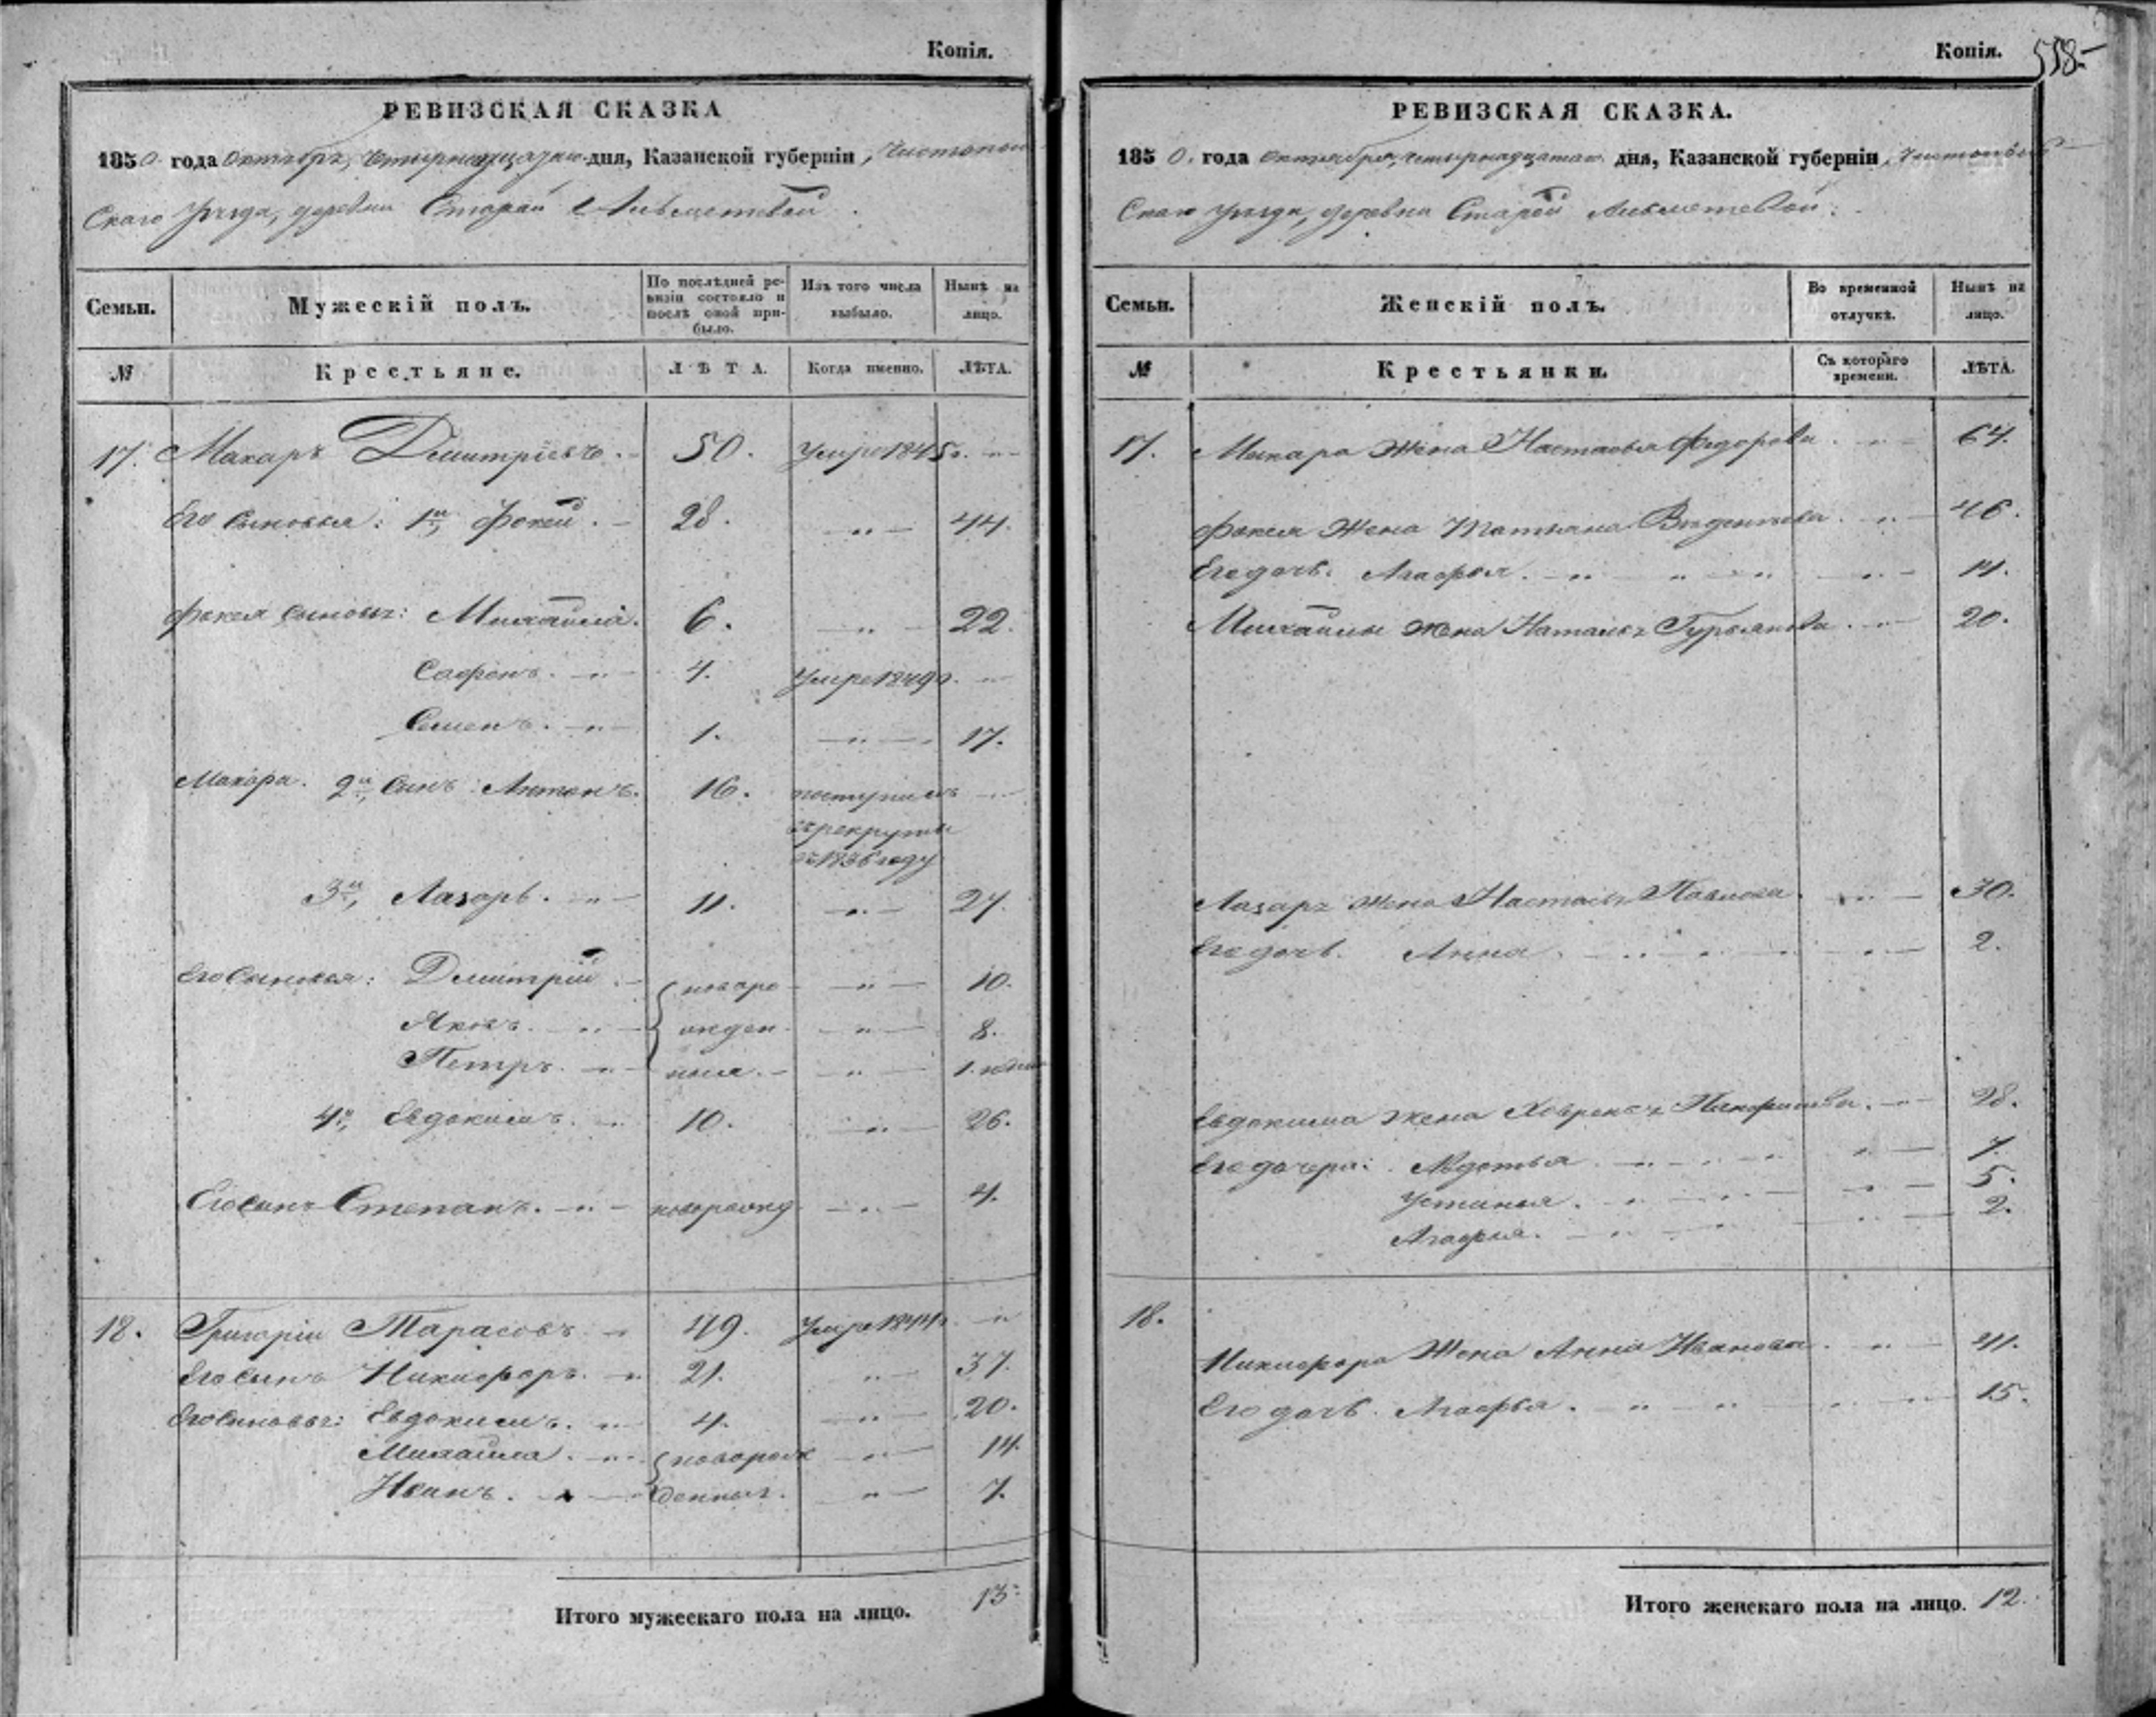 Копія.
РЕВИЗСКАЯ СКАЗКА
1850 года Октября, четырнадцатаго дня, Казанской губерніи, Чистополь
скаго уѣзда, деревни Старой Альметевой.
Семьи. Мужескій полъ. По послѣдней ревизіи состояло и послѣ оной прибыло. Изъ того числа выбыло. Нынѣ на лицо.
№ Крестьяне. ЛѢТА. Когда именно. ЛѢТА.
17. Макаръ Дмитріевъ. 50. Умре 1845 г.
Его сыновья: 1й, Фокей. 28. 44.
Фокея сыновья: Михайла. 6. 22.
Софронъ. 4. Умре 1849 г.
Семенъ. 1. 17.
Макара. 2й, сынъ Антонъ. 16. поступилъ
въ рекруты
въ 1836 году
3й, Лазарь. 11. 27.
Его сыновья: Дмитрій новоро 10.
Яковъ. жден 8.
Петръ ные. 1.
4й, Евдокимъ. 10. 26.
Его сынъ Степанъ. новорожд 4.
18. Григорій Тарасовъ 49. Умре 1844 г.
Его сынъ Никифоръ. 21. 37.
Его сыновья: Евдокимъ. 4. 20.
Михайла. новорож 14.
Иванъ. денные. 7.
Итого мужескаго пола на лицо. 13.
Копія. 558.
РЕВИЗСКАЯ СКАЗКА.
1850. года Октября, четырнадцатаго дня, Казанской губерніи, Чистополь
скаго уѣзда, деревни Старой Альметевой.
Семьи. Женскій полъ. Во временной отлучкѣ. Нынѣ на лицо.
№ Крестьянки. Съ котораго времени. ЛѢТА.
17. Макара жена Настасья Федорова. 64.
Фокея жена Татьяна 46.
Его дочь. Агафья. 11.
Михайлы жена Наталья Гурьянова. 20.
Лазаря жена Настасья Павлова. 30.
Его дочь. Анна. 2.
Евдокима жена 28.
Его дочери: Авдотья 7.
Устинья. 5.
Агафья. 2.
18.
Никифора жена Анна Иванова. 41.
Его дочь. Агафья. 15.
Итого женскаго пола на лицо. 12.